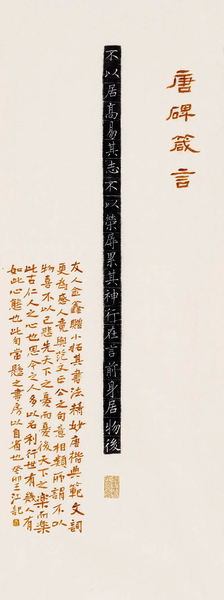 唐碑箴言
不以居高易其志不以榮辱累其神行在言前身居物後
友人金鑫贈小拓其書法精妙唐楷典範文詞
更為感人竟與范文正公之句意相類所謂不以
物喜不以己悲先天下之憂而憂後天下之樂而樂
此古仁人之心也思今之人多以名利行世有幾有
如此心態也此句當題之書房以自省也癸卯三江記